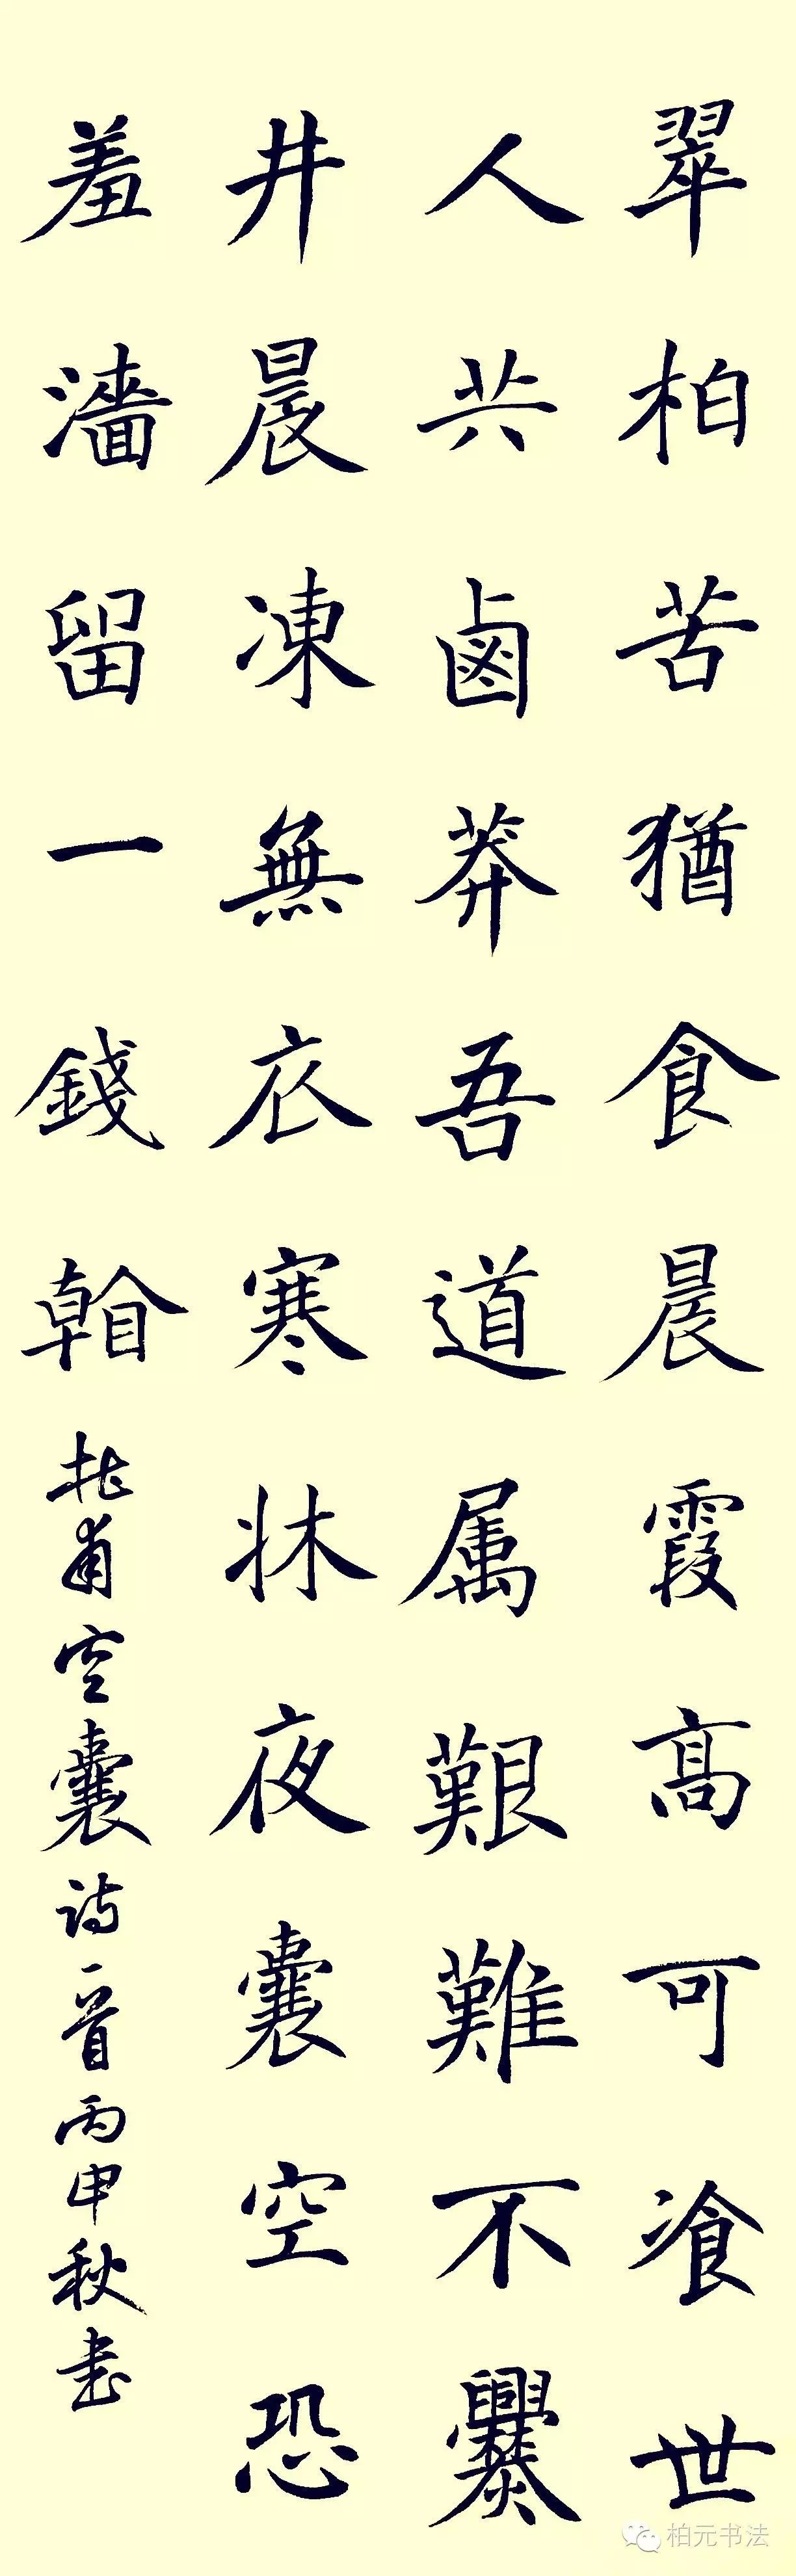 翠柏苦猶食晨霞高可飡世
人共鹵莽吾道属艱難不爨
井晨凍無衣寒牀夜囊空恐
羞濇留一錢
杜甫空囊诗一首丙申秋書
柏元书法